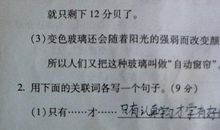 就只剩下12分贝了。
(3)变色玻璃还会随着阳光的强弱而改变颜
所以人们又把这种玻璃叫做“自动窗帘”。
2. 用下面的关联词各写一个句子。(9分)
(1)只有……才…… 只有认真才